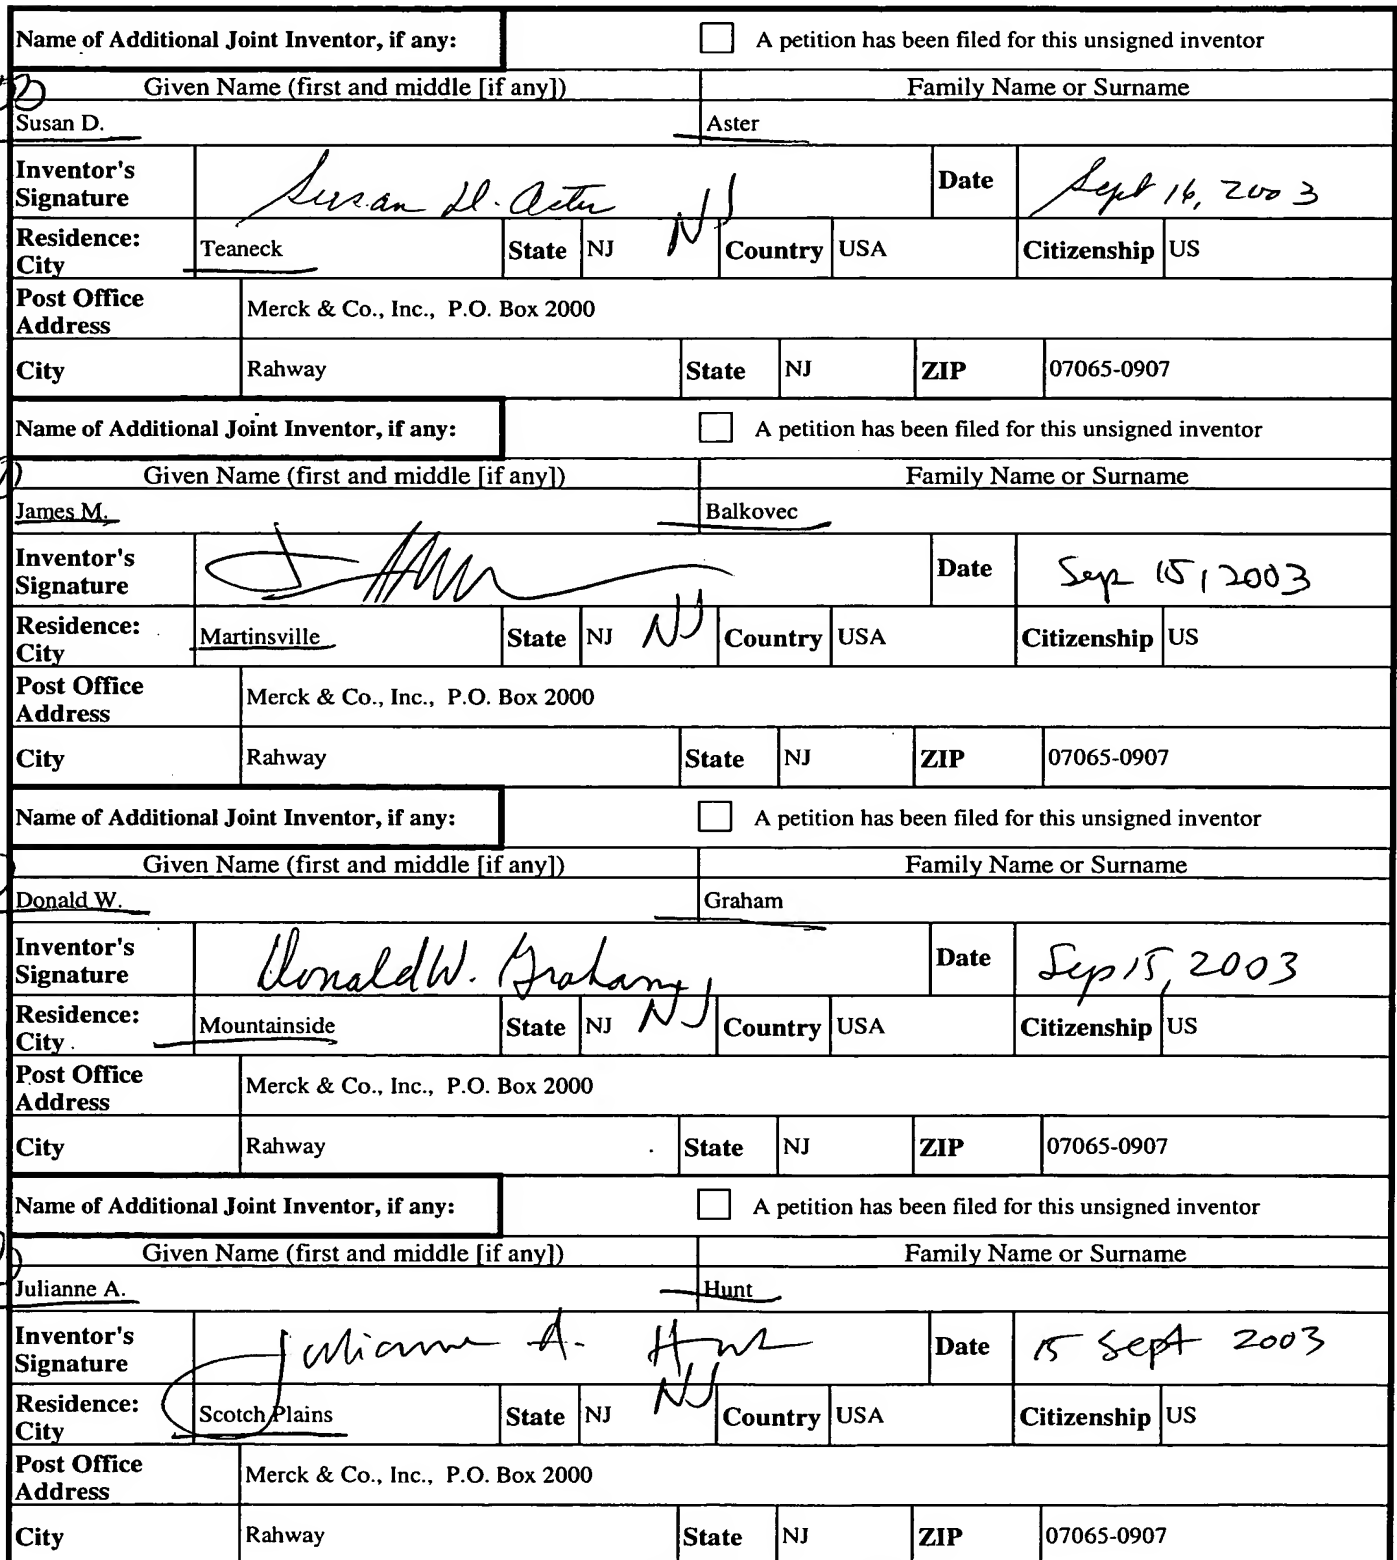 Name of Additional Joint Inventor, if any: A petition has been filed for this unsigned inventor
Given Name (first and middle [if any]) Family Name or Surname
Susan D. Aster
Inventor's Signature Susan D. Aster Date Sept 16, 2003
Residence: City Teaneck State NJ NJ Country USA Citizenship US
Post Office Address Merck & Co., Inc., P.O. Box 2000
City Rahway State NJ ZIP 07065-0907
Name of Additional Joint Inventor, if any: A petition has been filed for this unsigned inventor
Given Name (first and middle [if any]) Family Name or Surname
James M. Balkovec
Inventor's Signature Date Sep 15, 2003
Residence: City Martinsville State NJ NJ Country USA Citizenship US
Post Office Address Merck & Co., Inc., P.O. Box 2000
City Rahway State NJ ZIP 07065-0907
Name of Additional Joint Inventor, if any: A petition has been filed for this unsigned inventor
Given Name (first and middle [if any]) Family Name or Surname
Donald W. Graham
Inventor's Signature Donald W. Graham Date Sep 15, 2003
Residence: City Mountainside State NJ NJ Country USA Citizenship US
Post Office Address Merck & Co., Inc., P.O. Box 2000
City Rahway State NJ ZIP 07065-0907
Name of Additional Joint Inventor, if any: A petition has been filed for this unsigned inventor
Given Name (first and middle [if any]) Family Name or Surname
Julianne A. Hunt
Inventor's Signature Julianne A. Hunt Date 15 Sept 2003
Residence: City Scotch Plains State NJ NJ Country USA Citizenship US
Post Office Address Merck & Co., Inc., P.O. Box 2000
City Rahway State NJ ZIP 07065-0907